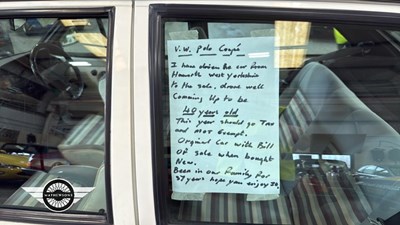 V.W. Polo Coupé
I have driven the car from
Howorth west yorkshire
to the sale, drove well
Comming up to be
40 years old
This year should go Tax
and MOT Exempt.
Original Car with Bill
Of sale when bought
New.
Been in our Family for
37 years hope you enjoy
MATHEWSONS